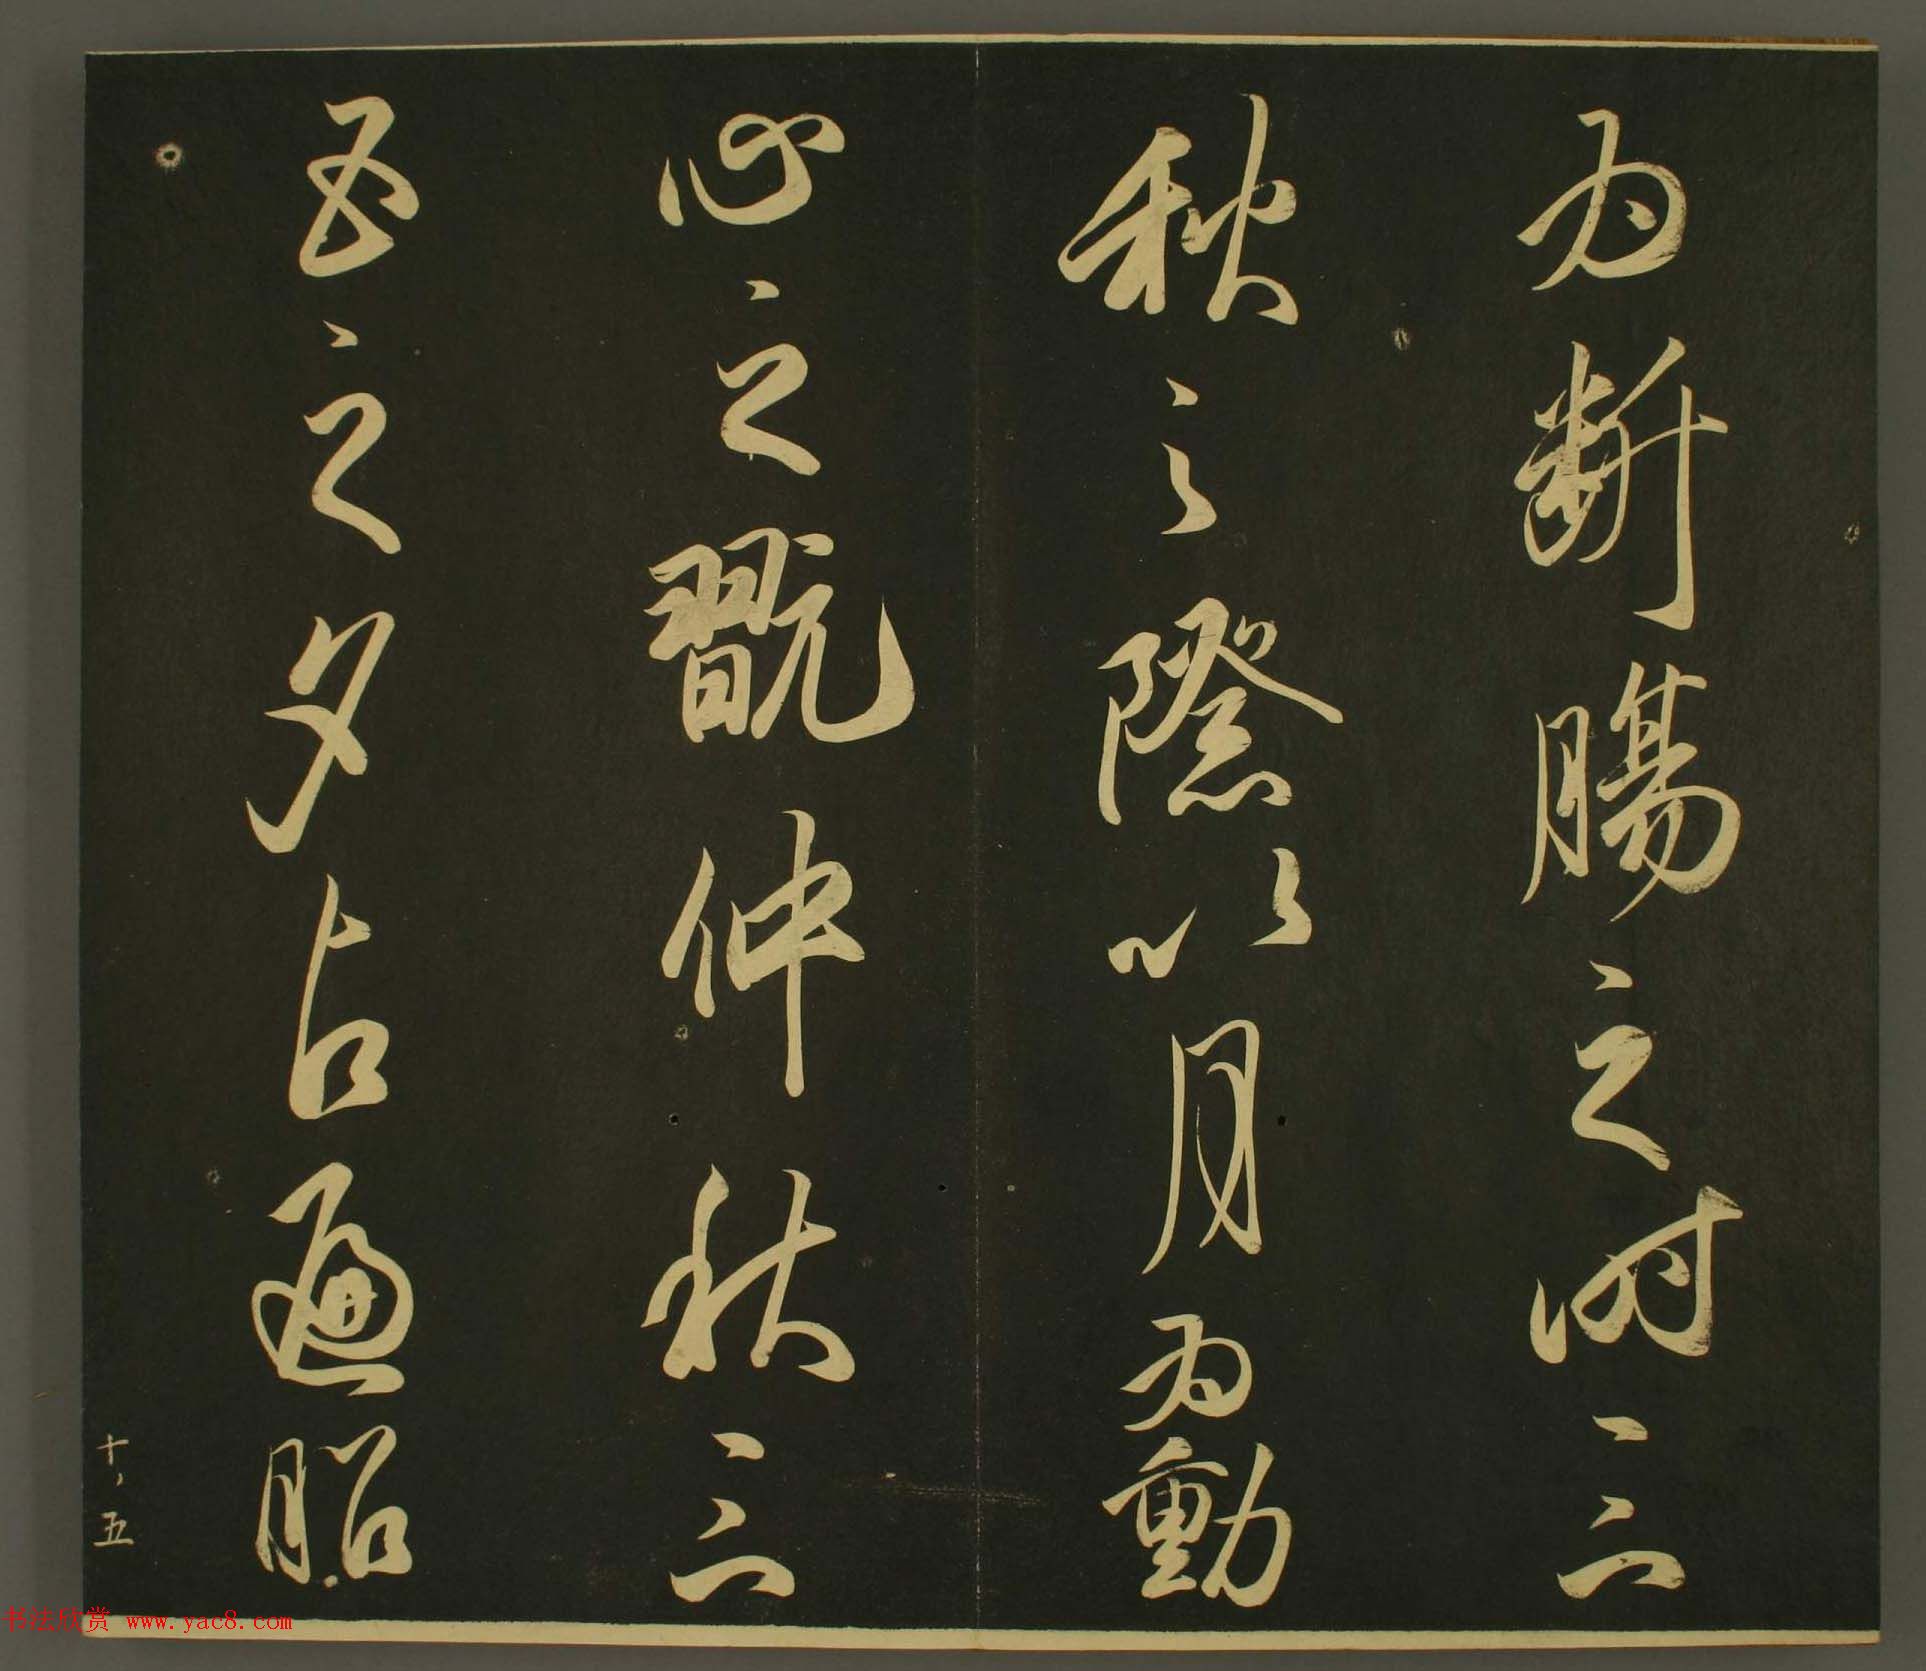 為断腸之時三
秋之際以月為動
心之翫仲秋三
五之夕占遍
十、五
书法欣赏 www.yac8.com